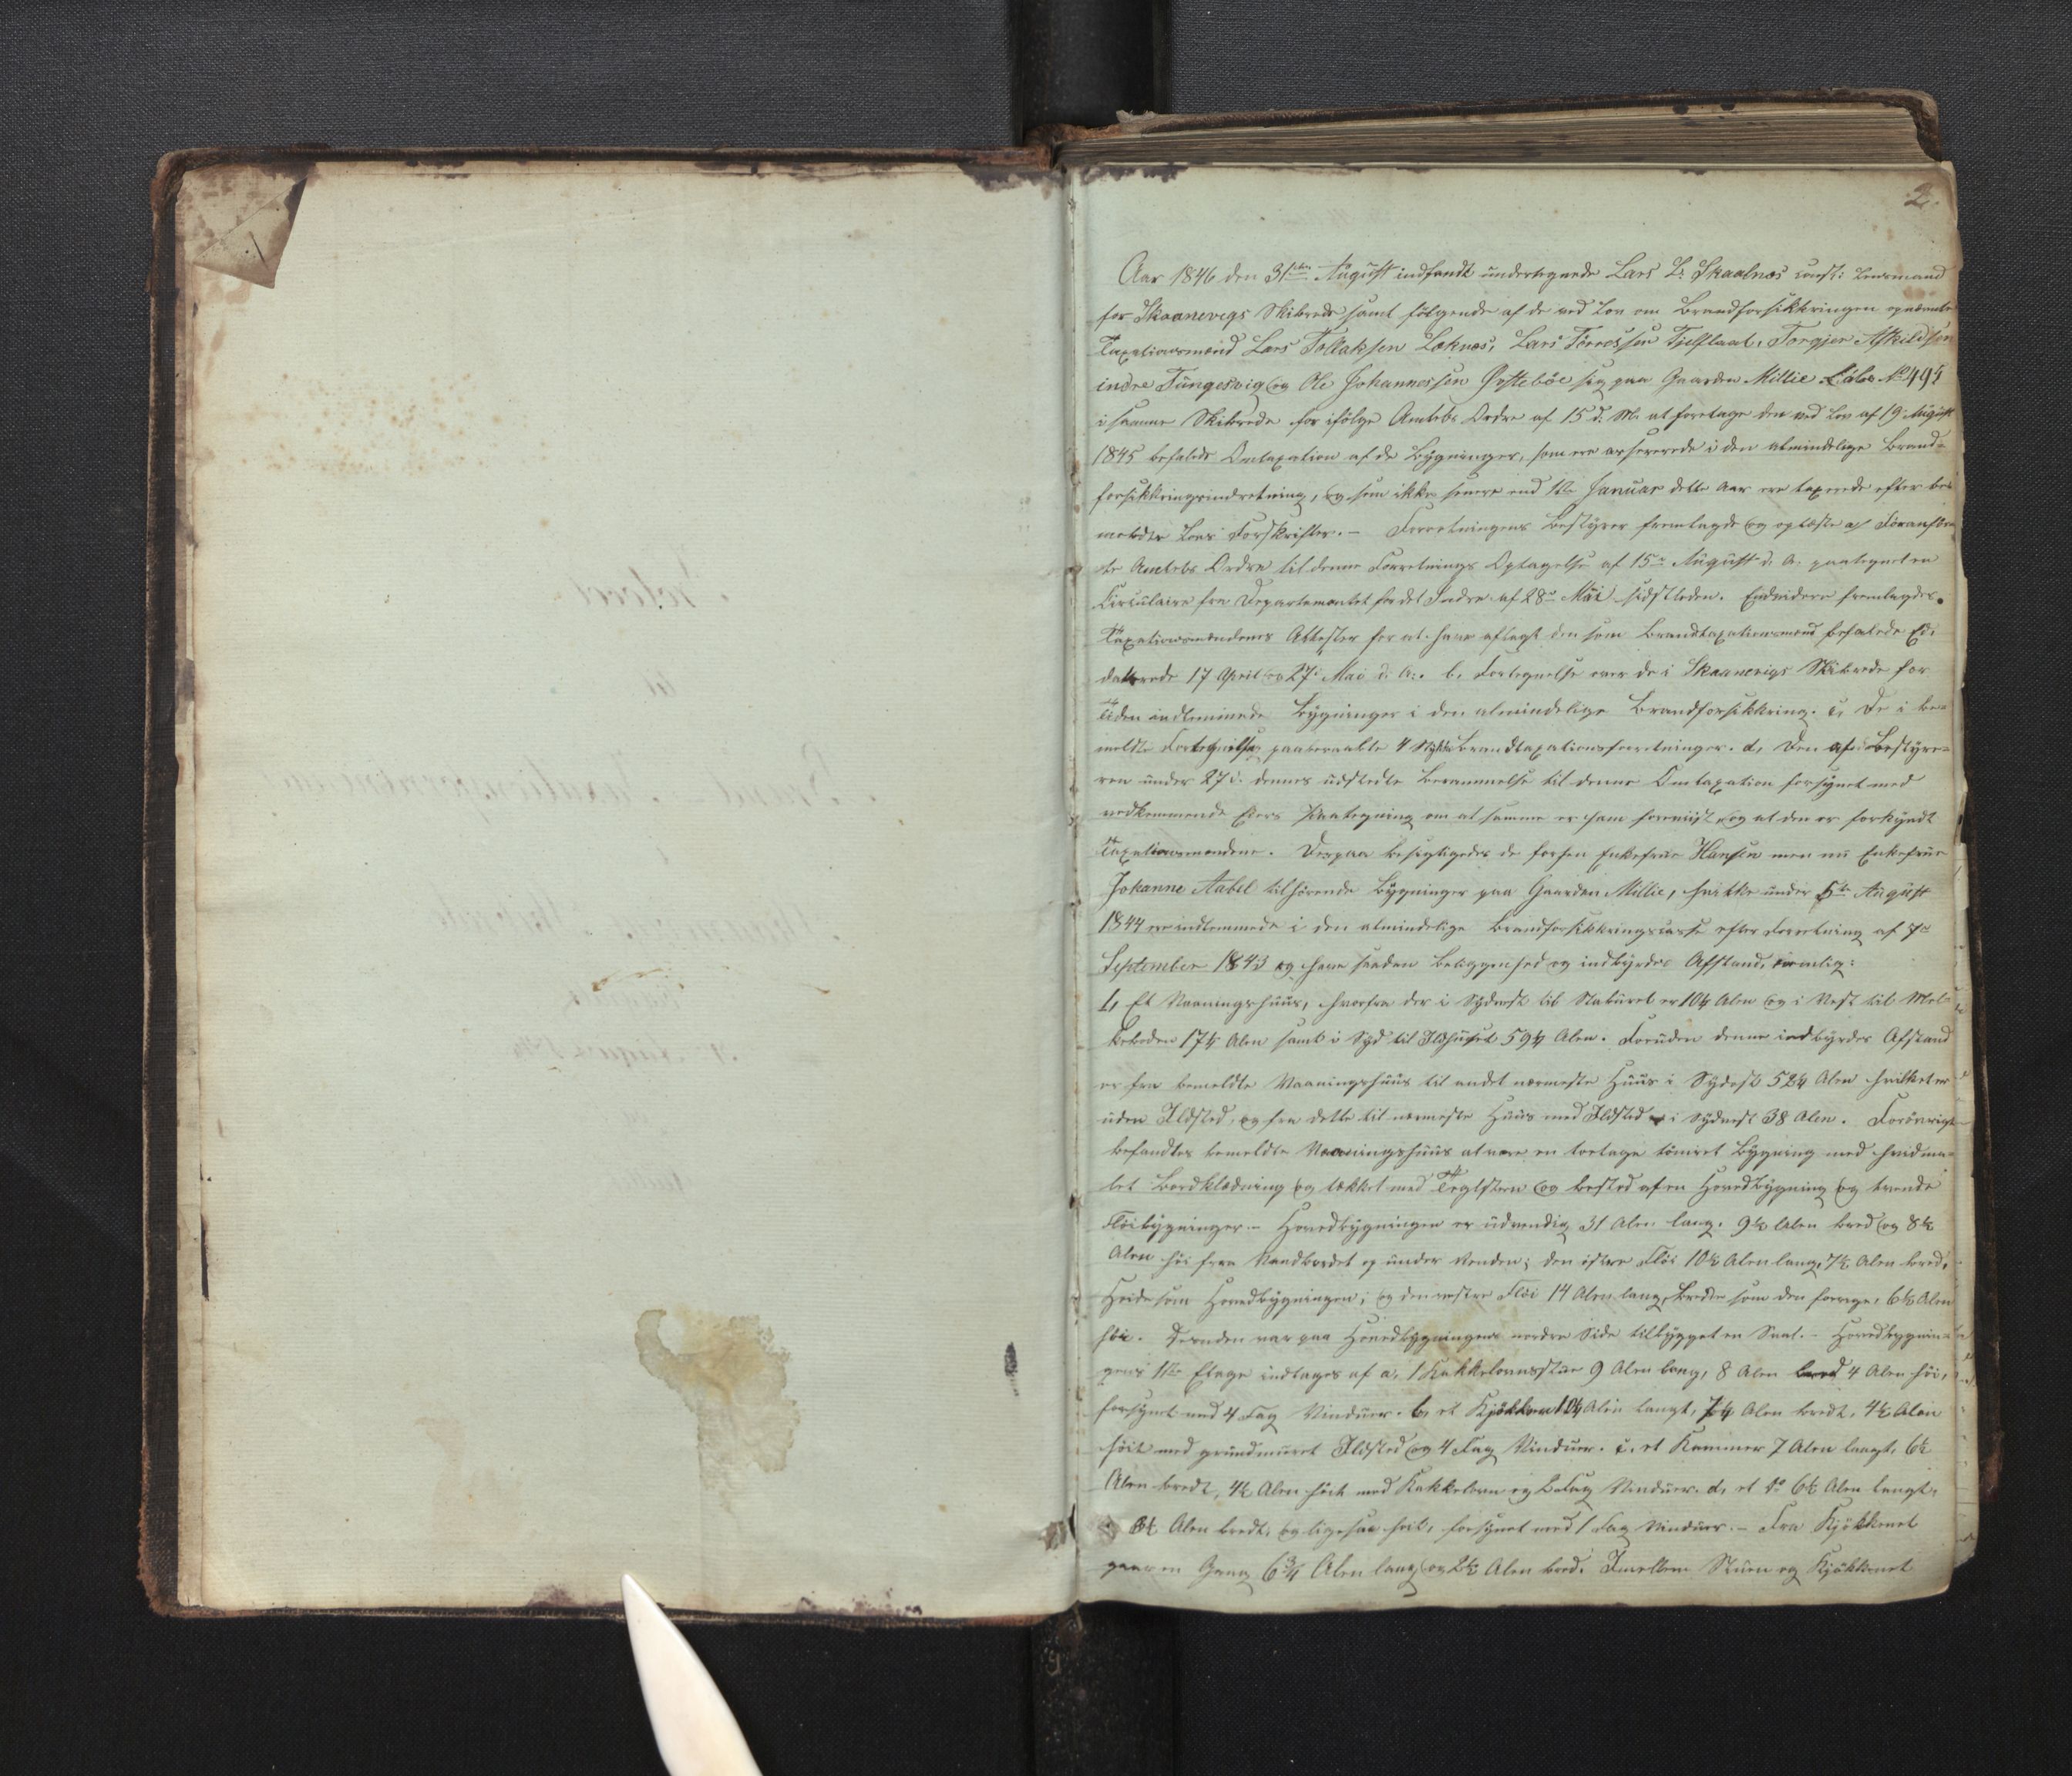 2.
Aar 1846 den 31te August indfandt undertegnede Lars L. Skaalnes const: Lensmand
for Skaanevigs Skibrede samt følgende af de ved Lov om Brandforsikkringen opnævnte
Taxationsmænd Lars Tollaksen Løknes, Lars Tørressen Fjelflaat, Torgjer Askildsen
indre Tungesvig og Ole Johannessen Østebøe sig paa Gaarden Millie Løbe No 494
i samme Skibrede for ifølge Amtets Ordre af 15 d. M. at foretage den ved Lov af 19 August
1845 befalede Omtaxation af de Bygninger, som ere assurerede i den almindelige Brand=
forsikkringsindretning, og som ikke senere end 1ste Januar dette Aar ere taxerede efter be=
meldte Lovs Forskrifter. - Forretningens Bestyrer fremlagde og oplæste a, Foranfør=
te Amtets Ordre til denne Forretnings Optagelse af 15de August d. A. paategnet en
Circulaire fra Departementet for det Indre af 28de Mai sidstleden. Endvidere fremlagdes
Taxationsmændenes Attester for at have aflagt den som Brandtaxationsmænd befalede Ed,
daterede 17 April og 27 Mai d. A:. b, Fortegnelse over de i Skaanevigs Skibrede for
Tiden indlemmede Bygninger i den almindelige Brandforsikkring. c, De i be=
meldte Fortegnelse paaberaabte 4 Stykker Brandtaxationsforretninger. d, Den af Bestyre=
ren under 27 d. dennes udstedte Berammelse til denne Omtaxation forsynet med
vedkommende Eiers Paategning om at samme er ham foreviist, og at den er forkyndt
Taxationsmændene. Derpaa besigtigedes de forhen Enkefrue Hansen men nu Enkefrue
Johanne Aabel tilhørende Bygninger paa Gaarden Millie, hvilke under 5te August
1844 ere indlemmede i den almindelige Brandforsikkringscasse efter Forretning af 7de
September 1843 og have saadan Beliggenhed og indbyrdes Afstand, nemlig:
1, Et Vaaningshuus, hvorfra der i Sydvest til Staburet er 10¼ Alen og i Vest til Mel=
keboden 17¼ Alen samt i Syd til Ildhuset 59¼ Alen. Foruden denne indbyrdes Afstand
er fra bemeldte Vaaningshuus til andet nærmeste Huus i Sydost 52¼ Alen hvilket er
uden Ildsted, og fra dette til nærmeste Huus med Ildsted i Sydvest 38 Alen. Forøvrigt
befandtes bemeldte Vaaningshuus at være en toetage tømret Bygning med hvidma=
let Bordklædning og tækket med Teglsteen og bestod af en Hovedbygning og tvende
Fløibygninger. - Hovedbygningen er udvendig 31 Alen lang, 9½ Alen bred og 8½
Alen høi fra Vandbordet og under Renden; den østre Fløi 10½ Alen lang, 7½ Alen bred,
Høide som Hovedbygningen; og den vestre Fløi 14 Alen lang, Bredde som den forrige, 6½ Alen
høi. Desuden var paa Hovedbygningens nordre Side tilbygget en Sval. - Hovedbygnin=
gens 1ste Etage indtages af a, 1 Kakkelovnsstue 9 Alen lang, 8 Alen bred 4 Alen høi,
forsynet med 4 Fag Vinduer. b, et Kjøkken 10¼ Alen langt, 7¼ Alen bredt, 4½ Alen
høit med grundmuret Ildsted og 4 Fag Vinduer. c, et Kammer 7 Alen langt, 6½
Alen bredt, 4½ Alen høit med Kakkelovn og 2 Fag Vinduer. d, et do 6½ Alen langt,
3½ Alen bredt, og ligesaa høit, forsynet med 1 Fag Vinduer. - Fra Kjøkkenet
gaar en Gang 6¾ Alen lang og 2½ Alen bred. Imellem Stuen og Kjøkkenet